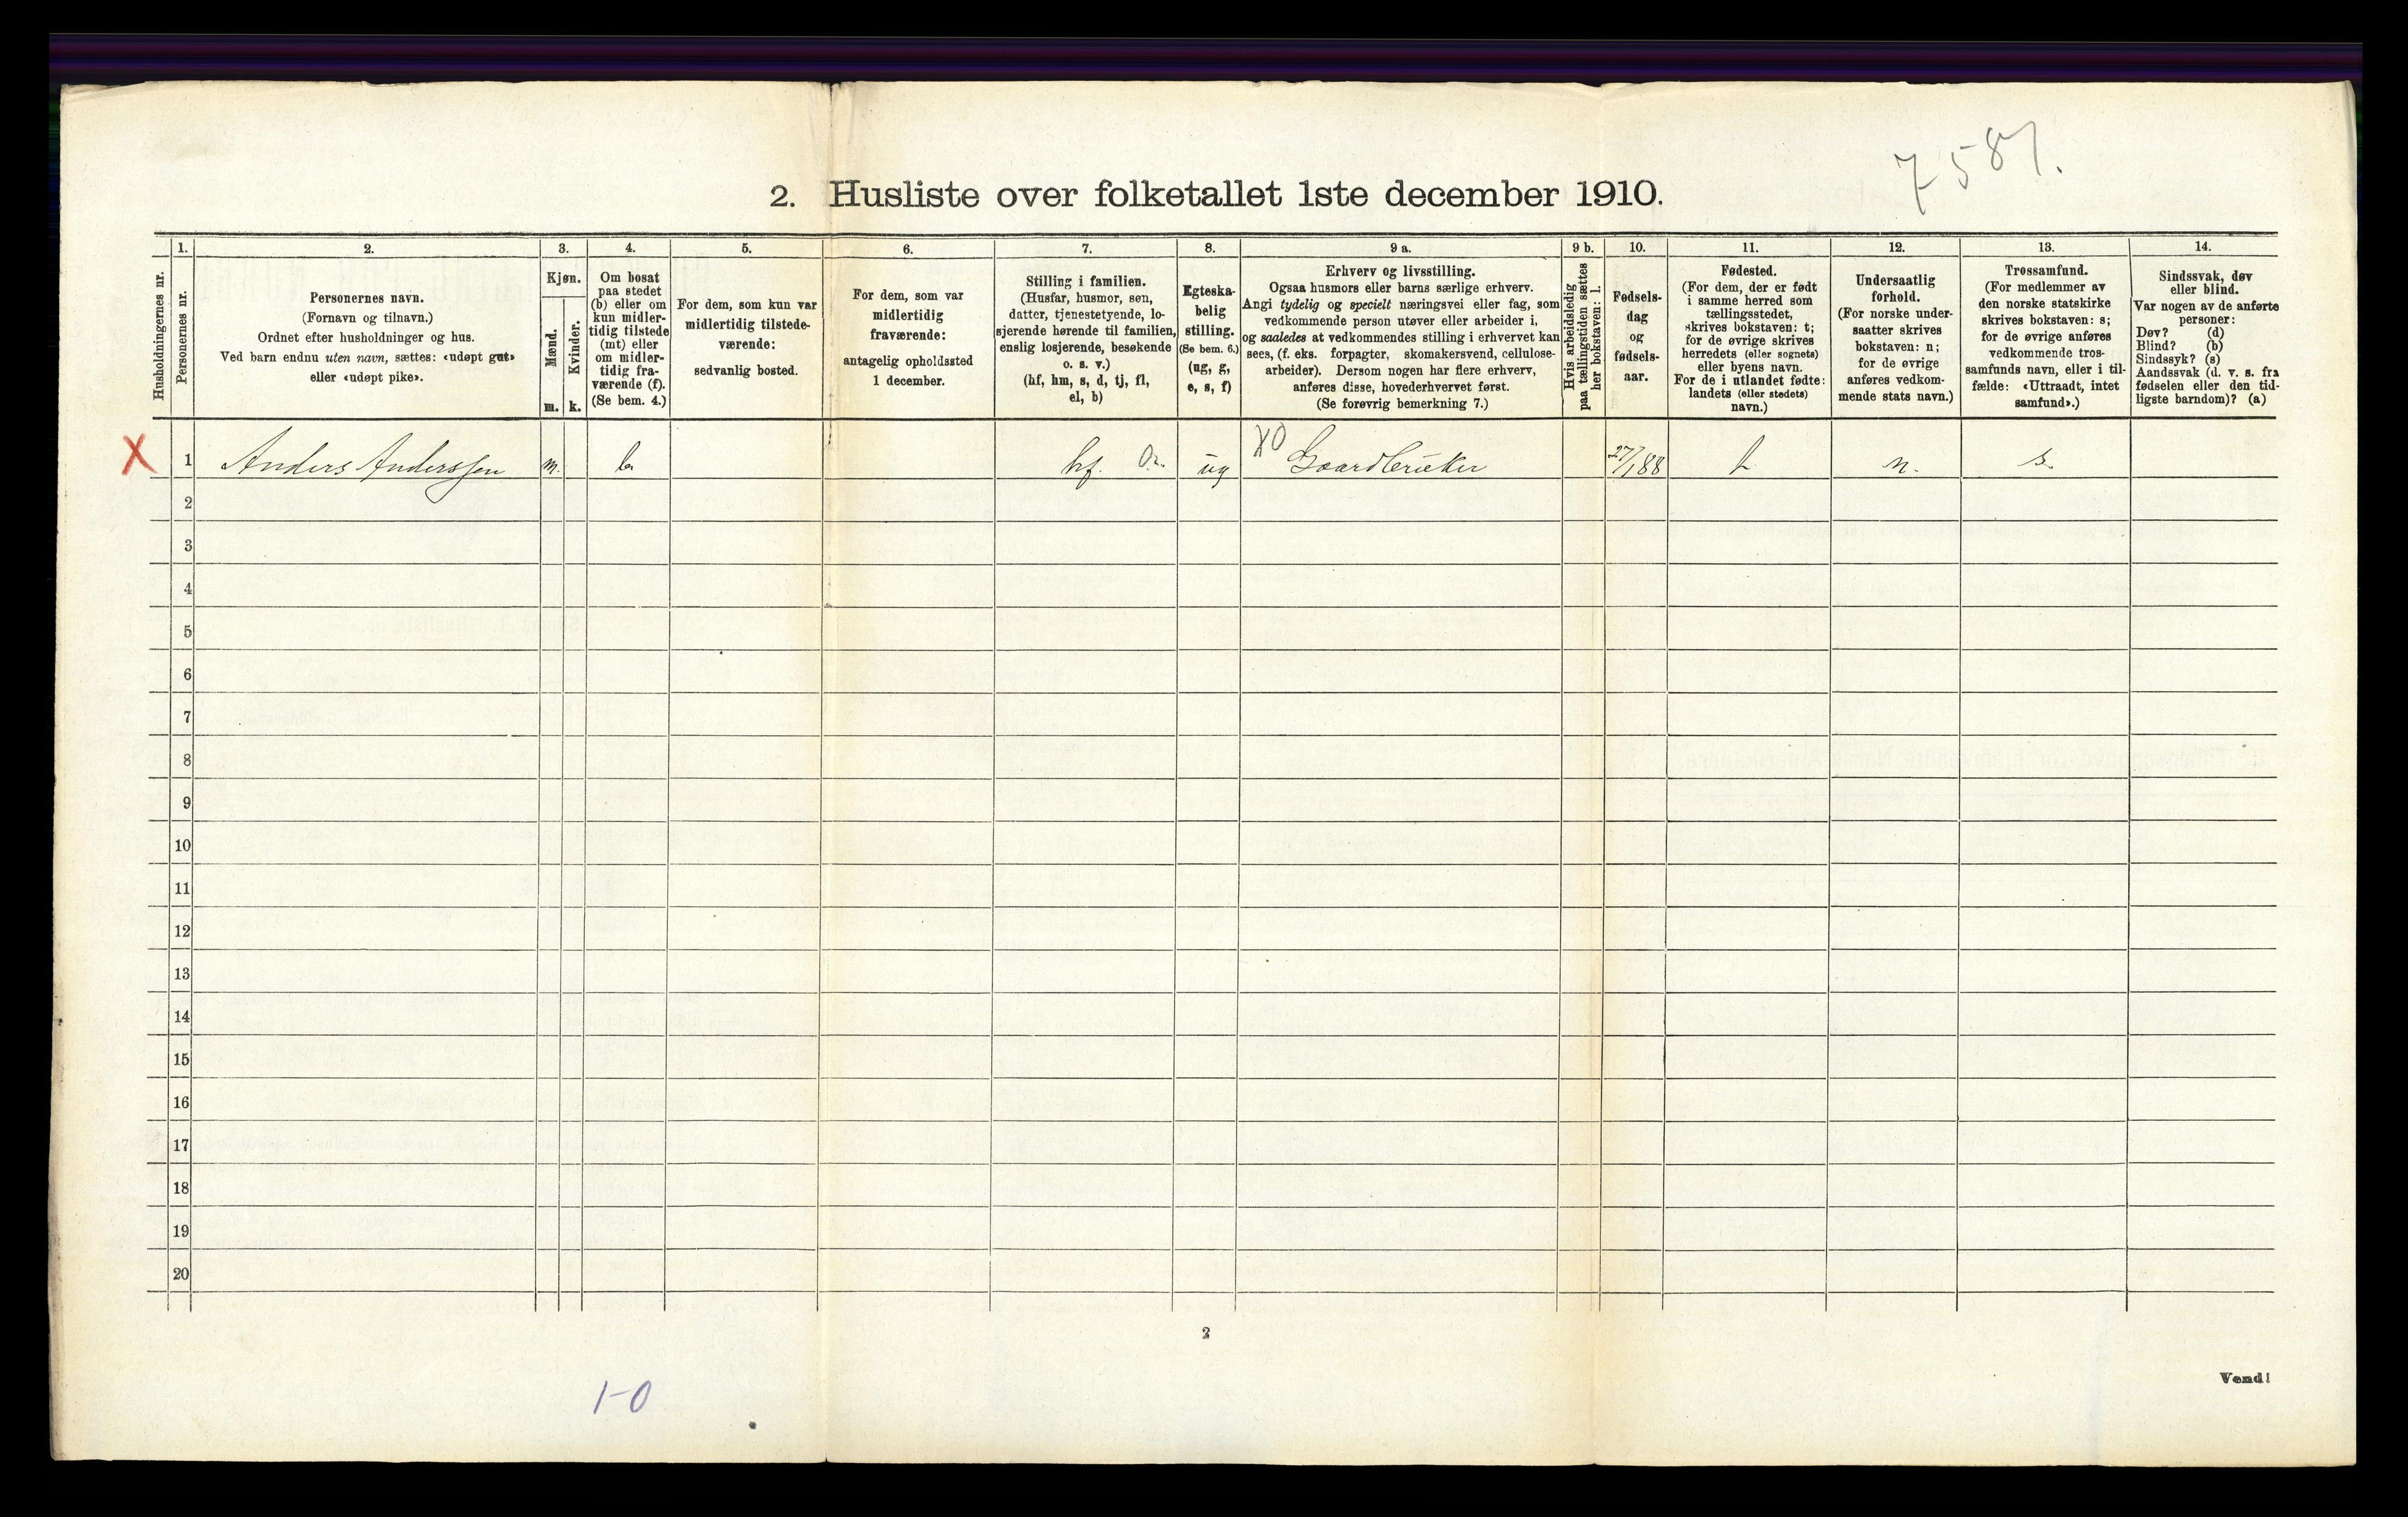 7581.
2. Husliste over folketallet 1ste december 1910.
Husholdningernes nr.
1.
Personernes nr.
2.
Personernes navn.
(Fornavn og tilnavn.)
Ordnet efter husholdninger og hus.
Ved barn endnu uten navn, sættes: «udøpt gut»
eller «udøpt pike».
3.
Kjøn.
Mænd.
Kvinder.
m. k.
4.
Om bosat
paa stedet
(b) eller om
kun midler-
tidig tilstede
(mt) eller
om midler-
tidig fra-
værende (f).
(Se bem. 4.)
5.
For dem, som kun var
midlertidig tilstede-
værende:
sedvanlig bosted.
6.
For dem, som var
midlertidig
fraværende:
antagelig opholdssted
1 december.
7.
Stilling i familien.
(Husfar, husmor, søn,
datter, tjenestetyende, lo-
sjerende hørende til familien,
enslig losjerende, besøkende
o. s. v.)
(hf, hm, s, d, tj, fl,
el, b)
8.
Egteska-
belig
stilling.
(Se bem. 6.)
(ug, g,
e, s, f)
9 a.
Erhverv og livsstilling.
Ogsaa husmors eller barns særlige erhverv.
Angi tydelig og specielt næringsvei eller fag, som
vedkommende person utøver eller arbeider i,
og saaledes at vedkommendes stilling i erhvervet kan
sees, (f. eks. forpagter, skomakersvend, cellulose-
arbeider). Dersom nogen har flere erhverv,
anføres disse, hovederhvervet først.
(Se forøvrig bemerkning 7.)
9 b.
Hvis arbeidsledig
paa tællingstiden sættes
her bokstaven: l.
10.
Fødsels-
dag
og
fødsels-
aar.
11.
Fødested.
(For dem, der er født
i samme herred som
tællingsstedet,
skrives bokstaven: t;
for de øvrige skrives
herredets (eller sognets)
eller byens navn.
For de i utlandet fødte:
landets (eller stedets)
navn.)
12.
Undersaatlig
forhold.
(For norske under-
saatter skrives
bokstaven: n;
for de øvrige
anføres vedkom-
mende stats navn.)
13.
Trossamfund.
(For medlemmer av
den norske statskirke
skrives bokstaven: s;
for de øvrige anføres
vedkommende tros-
samfunds navn, eller i til-
fælde: «Uttraadt, intet
samfund».)
14.
Sindssvak, døv
eller blind.
Var nogen av de anførte
personer:
Døv? (d)
Blind? (b)
Sindssyk? (s)
Aandssvak (d. v. s. fra
fødselen eller den tid-
ligste barndom)? (a)
X 1 Anders Anderssen m. b hf. ug X0 Gaardbruker 27/1 88 t n. s.
2
3
4
5
6
7
8
9
10
11
12
13
14
15
16
17
18
19
20
2
Vend!
1-0